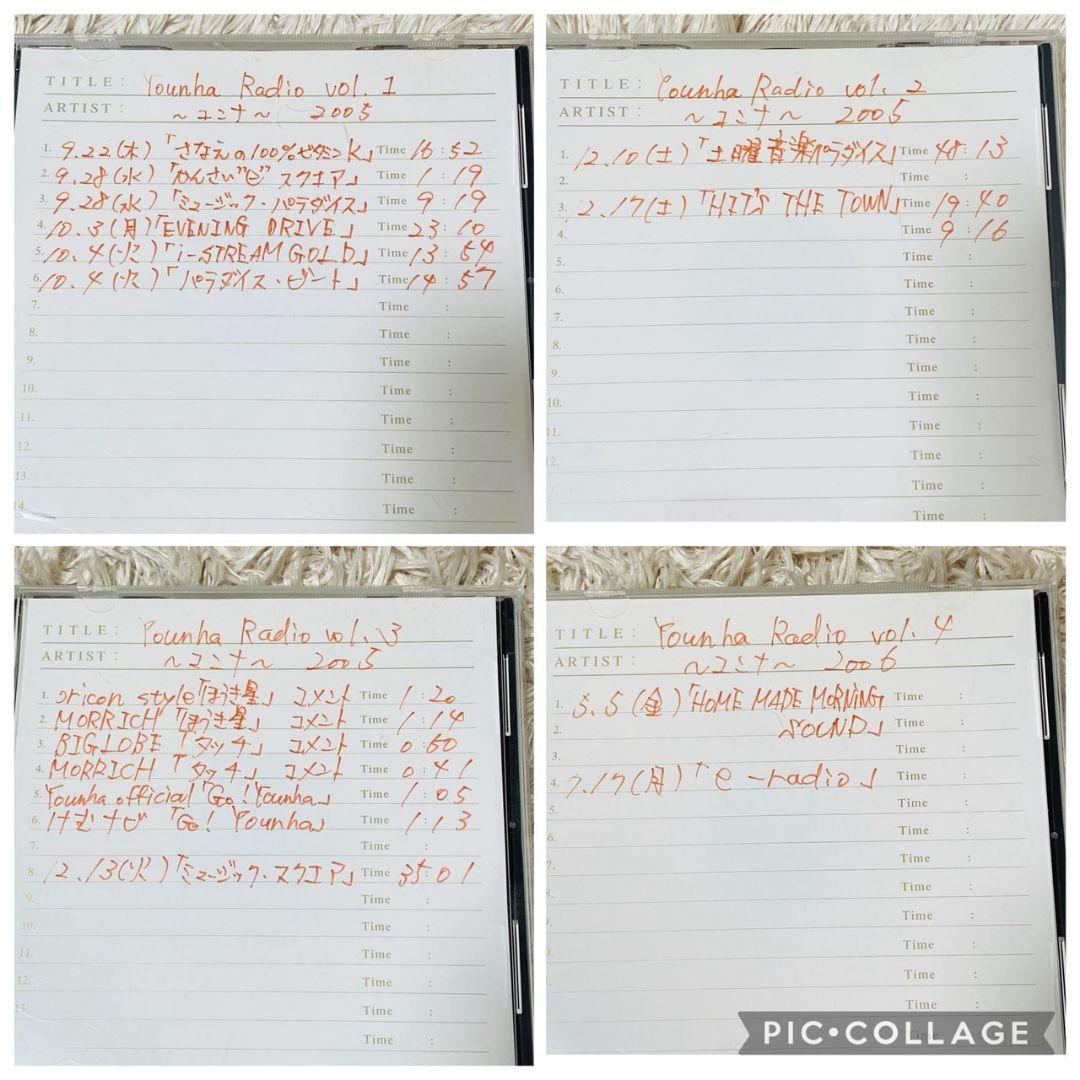 TITLE: Younha Radio vol. 1
ARTIST: ~ユンナ~ 2005
1. 9.22(木)「さなえの100%ビタミンK」 Time 16:52
2. 9.28(水)「かんさい"ピ"スクエア」 Time 1:19
3. 9.28(水)「ミュージック・パラダイス」 Time 9:19
4. 10.3(月)「EVENING DRIVE」 Time 23:10
5. 10.4(火)「i-STREAM GOLD」 Time 13:54
6. 10.4(火)「パラダイス・ビート」 Time 14:57
7. Time :
8. Time :
9. Time :
10. Time :
11. Time :
12. Time :
13. Time :
14. Time :
TITLE: Younha Radio vol. 2
ARTIST: ~ユンナ~ 2005
1. 12.10(土)「土曜音楽パラダイス」 Time 48:13
2. Time :
3. 12.17(土)「HIT'S THE TOWN」 Time 19:40
4. Time 9:16
5. Time :
6. Time :
7. Time :
8. Time :
9. Time :
10. Time :
11. Time :
12. Time :
Time :
Time :
TITLE: Younha Radio vol. 3
ARTIST: ~ユンナ~ 2005
1. oricon style「ほうき星」 コメント Time 1:20
2. MORRICH 「ほうき星」 コメント Time 1:14
3. BIGLOBE 「タッチ」 コメント Time 0:60
4. MORRICH 「タッチ」 コメント Time 0:41
5. Younha official「Go! Younha」 Time 1:05
6. けむナビ 「Go! Younha」 Time 1:13
7. Time :
8. 12.13(火)「ミュージック・スクエア」 Time 35:01
9. Time :
10. Time :
11. Time :
12. Time :
13. Time :
Time :
TITLE: Younha Radio vol. 4
ARTIST: ~ユンナ~ 2006
1. 5.5(金)「HOME MADE MORNING Time :
2. SOUND」 Time :
3. Time :
4. 7.17(月)「e-radio」 Time :
5. Time :
6. Time :
7. Time :
8. Time :
Time :
Time :
Time :
Time :
PIC•COLLAGE